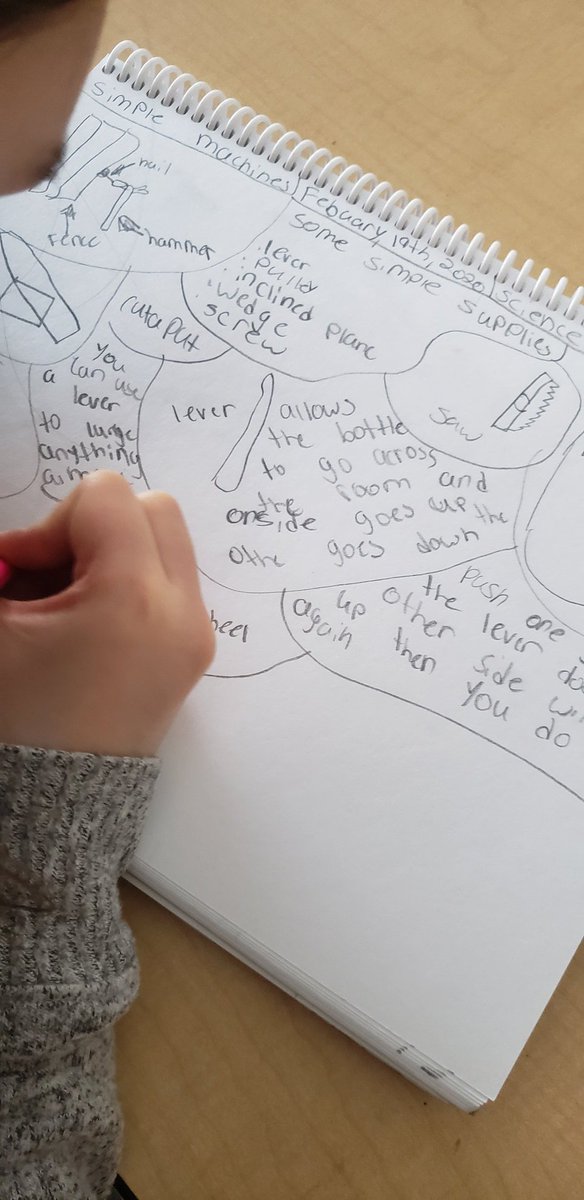 simple machines Febuary 19th, 2020 Science
nail
fence
hammer
some simple supplies
lever
pully
inclined plane
wedge
screw
cataput
saw
you
a can use
lever
to
anything
lever
allows
the bottle
to go across
the room and
one side goes up the
othe goes down
push one
the lever
up other side
again then you do
heel